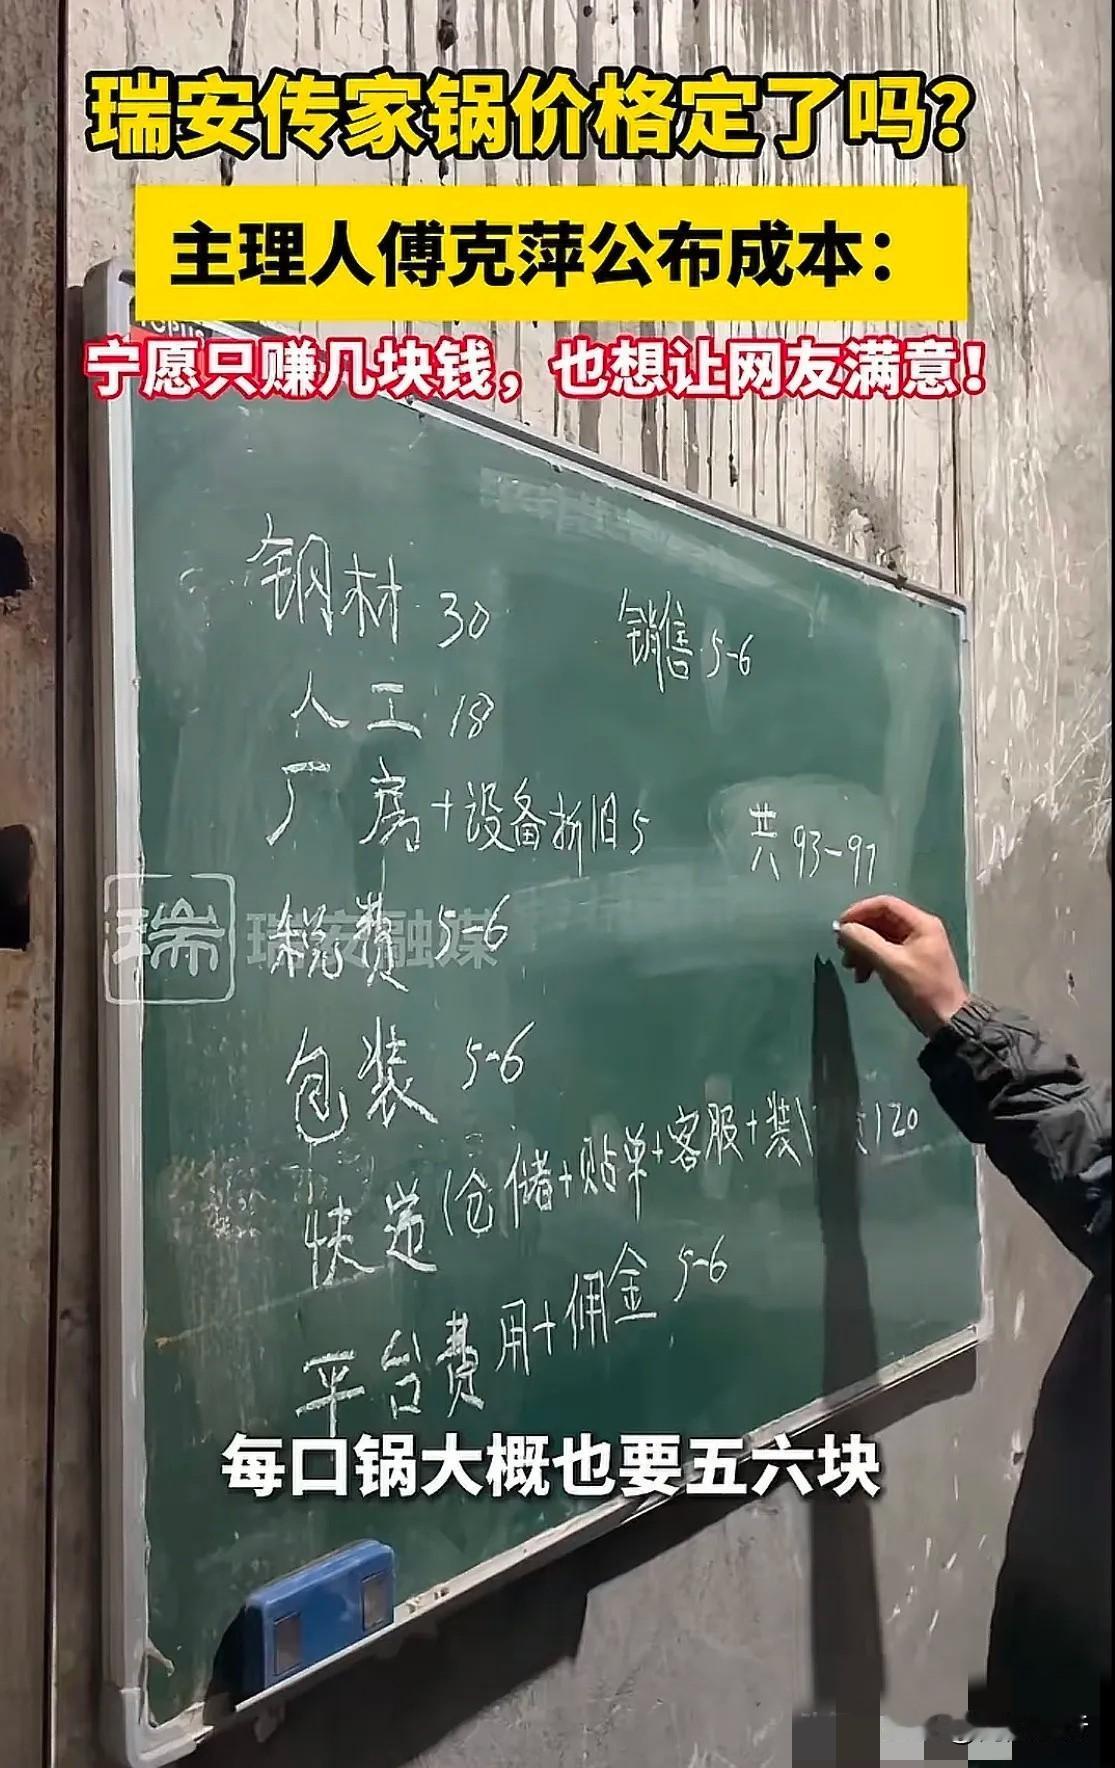 瑞安传家锅价格定了吗?
主理人傅克萍公布成本:
宁愿只赚几块钱,也想让网友满意!
钢材 30
销售 5-6
人工 18
厂房+设备折旧 5
共 93-97
瑞 瑞安融媒
税费 5-6
包装 5-6
快递(仓储+贴单+客服+装
20
平台费用+佣金 5-6
每口锅大概也要五六块